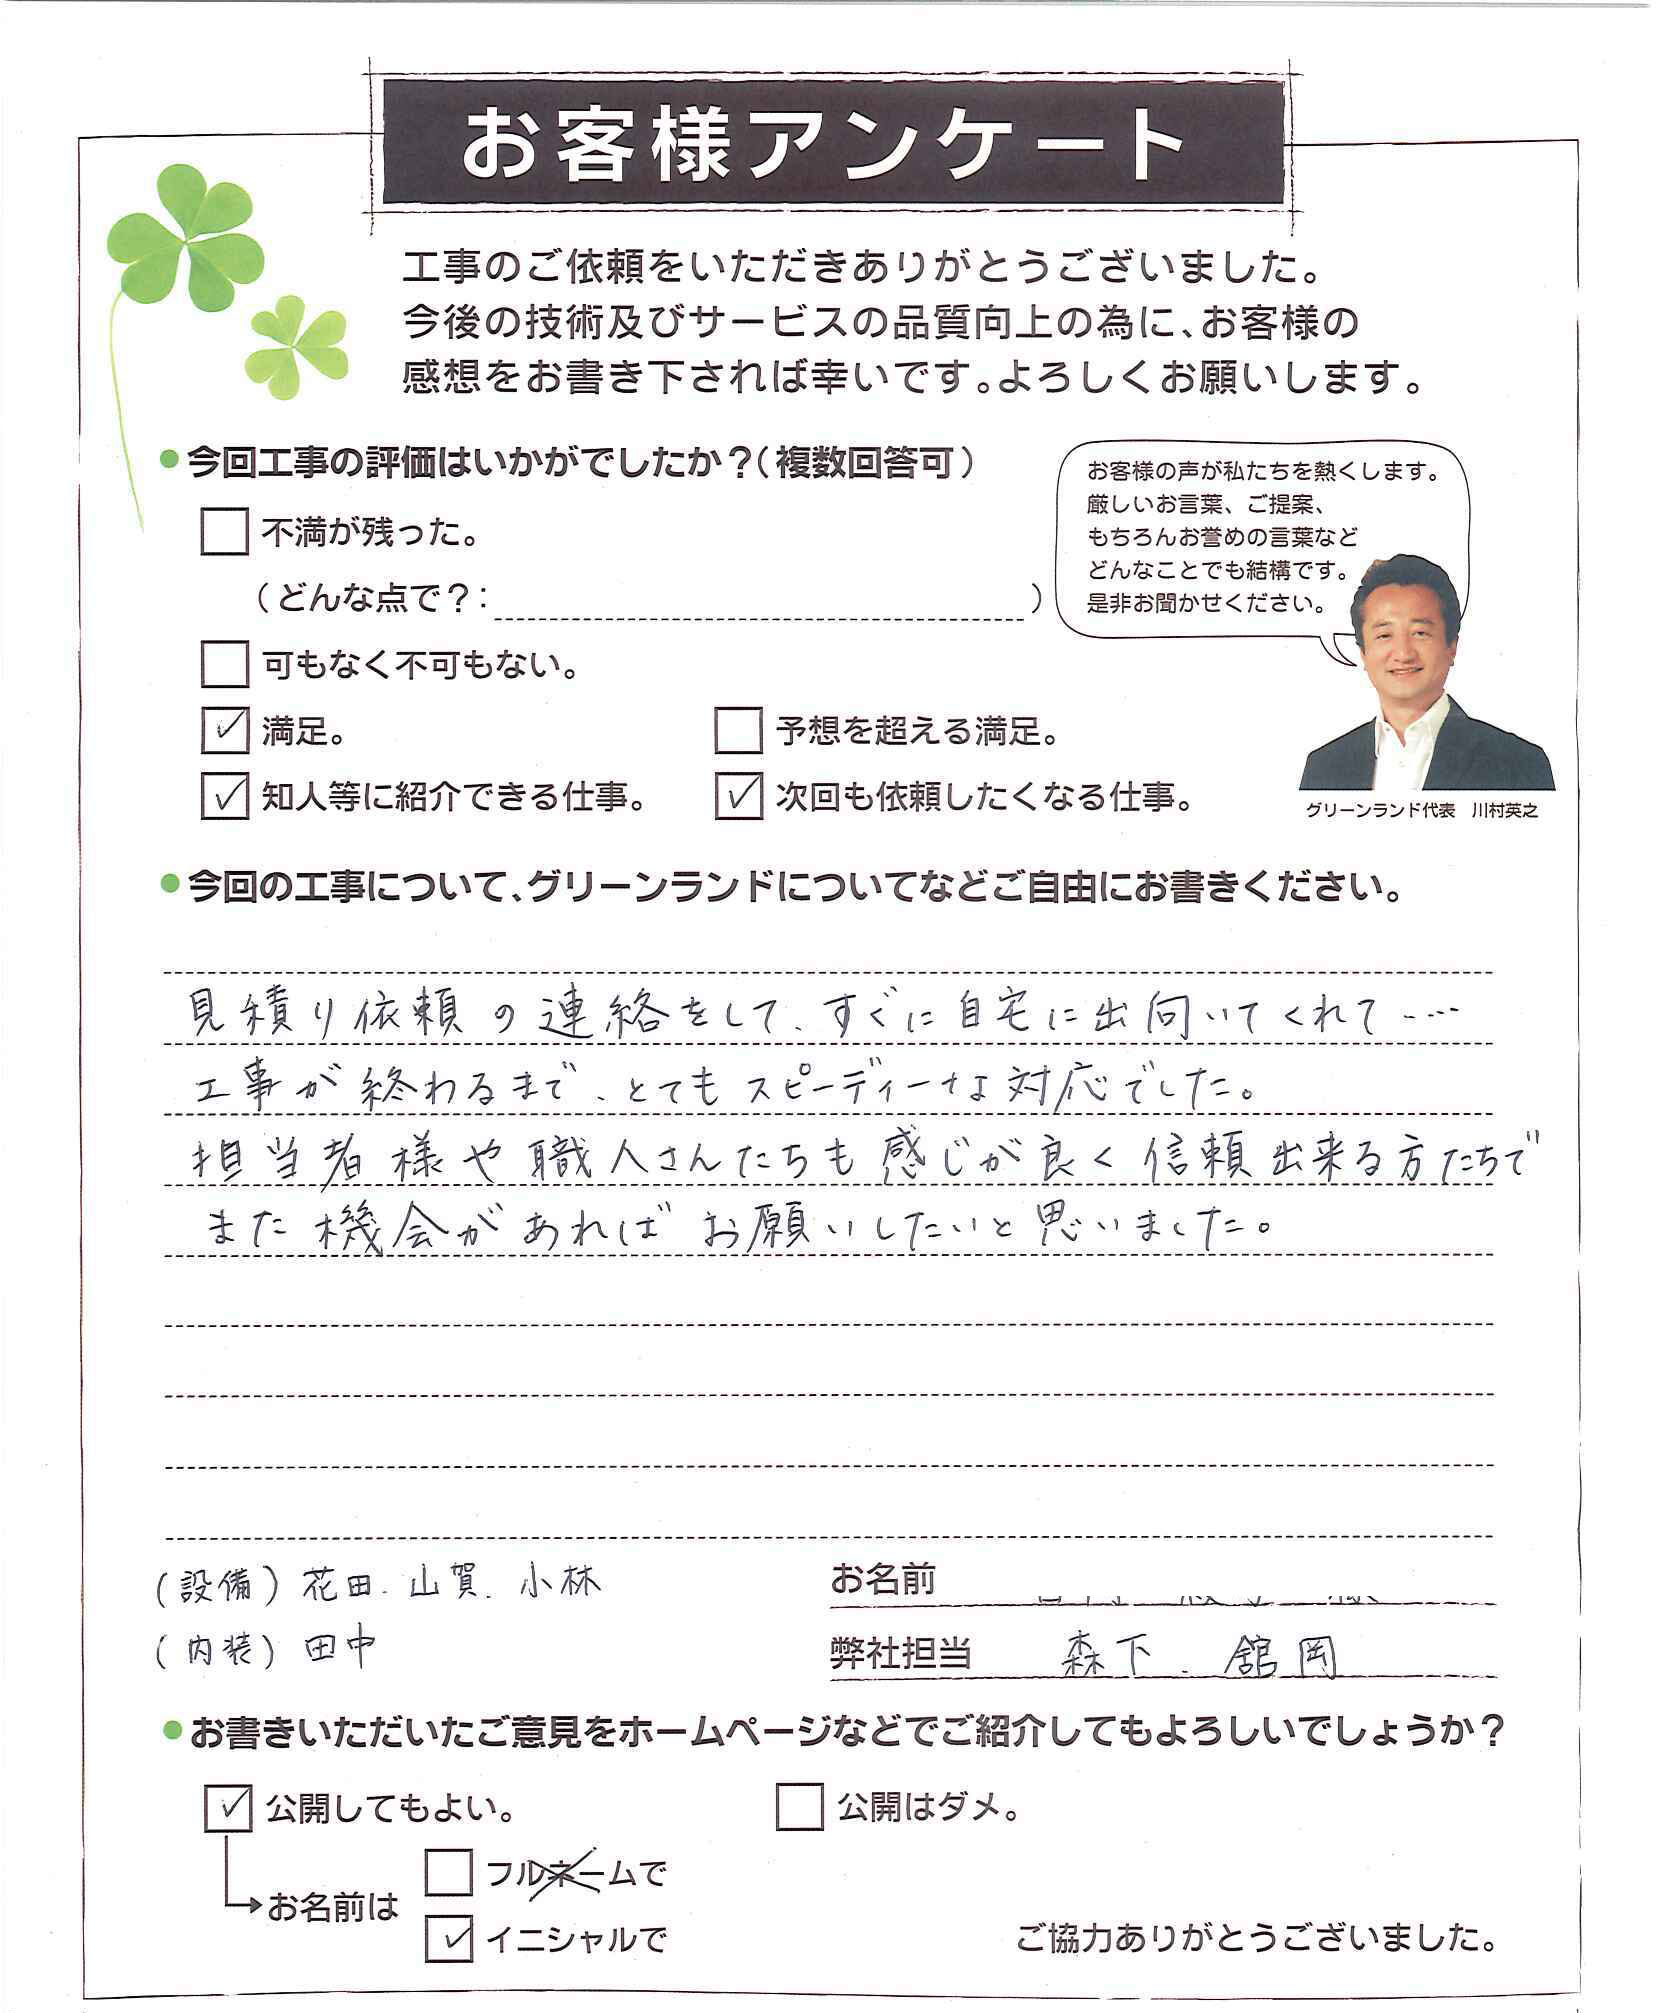 お客様アンケート
工事のご依頼をいただきありがとうございました。
今後の技術及びサービスの品質向上の為に、お客様の
感想をお書き下されば幸いです。よろしくお願いします。
●今回工事の評価はいかがでしたか？（複数回答可）
お客様の声が私たちを熱くします。
厳しいお言葉、ご提案、
もちろんお誉めの言葉など
どんなことでも結構です。
是非お聞かせください。
□ 不満が残った。
（どんな点で？：　　　）
□ 可もなく不可もない。
☑ 満足。　□ 予想を超える満足。
☑ 知人等に紹介できる仕事。　☑ 次回も依頼したくなる仕事。
グリーンランド代表　川村英之
●今回の工事について、グリーンランドについてなどご自由にお書きください。
見積り依頼の連絡をして、すぐに自宅に出向いてくれて‥‥
工事が終わるまで、とてもスピーディーな対応でした。
担当者様や職人さんたちも感じが良く信頼出来る方たちで
また機会があればお願いしたいと思いました。
（設備）花田、山賀、小林　お名前
（内装）田中　弊社担当　森下、舘岡
●お書きいただいたご意見をホームページなどでご紹介してもよろしいでしょうか？
☑ 公開してもよい。　□ 公開はダメ。
□ フルネームで
お名前は
☑ イニシャルで　ご協力ありがとうございました。